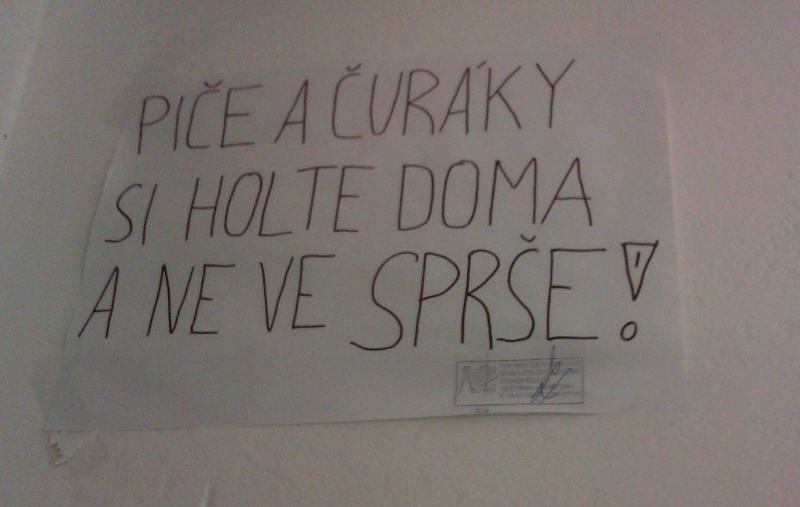 PIČE A ČURÁKY
SI HOLTE DOMA
A NE VE SPRŠE!